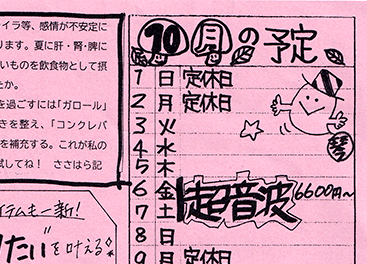 イライラ等、感情が不安定に
ります。夏に肝・腎・脾に
いものを飲食物として摂
たか。
を過ごすには「ガロール」
きを整え、「コンクレバ
を補充する。これが私の
試してね！　ささはら記
イテムも一新！
りたいを叶える
10月の予定
1 日 定休日
2 月 定休日
3 火
4 水
5 木
6 金
7 土
超音波 6600円～
8 日
9 月 定休日
琴